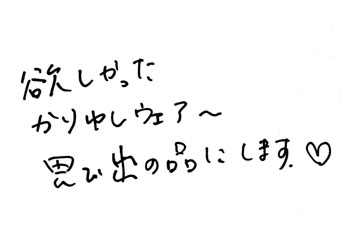 欲しかった
かりゆしウェア～
思い出の品にします♡